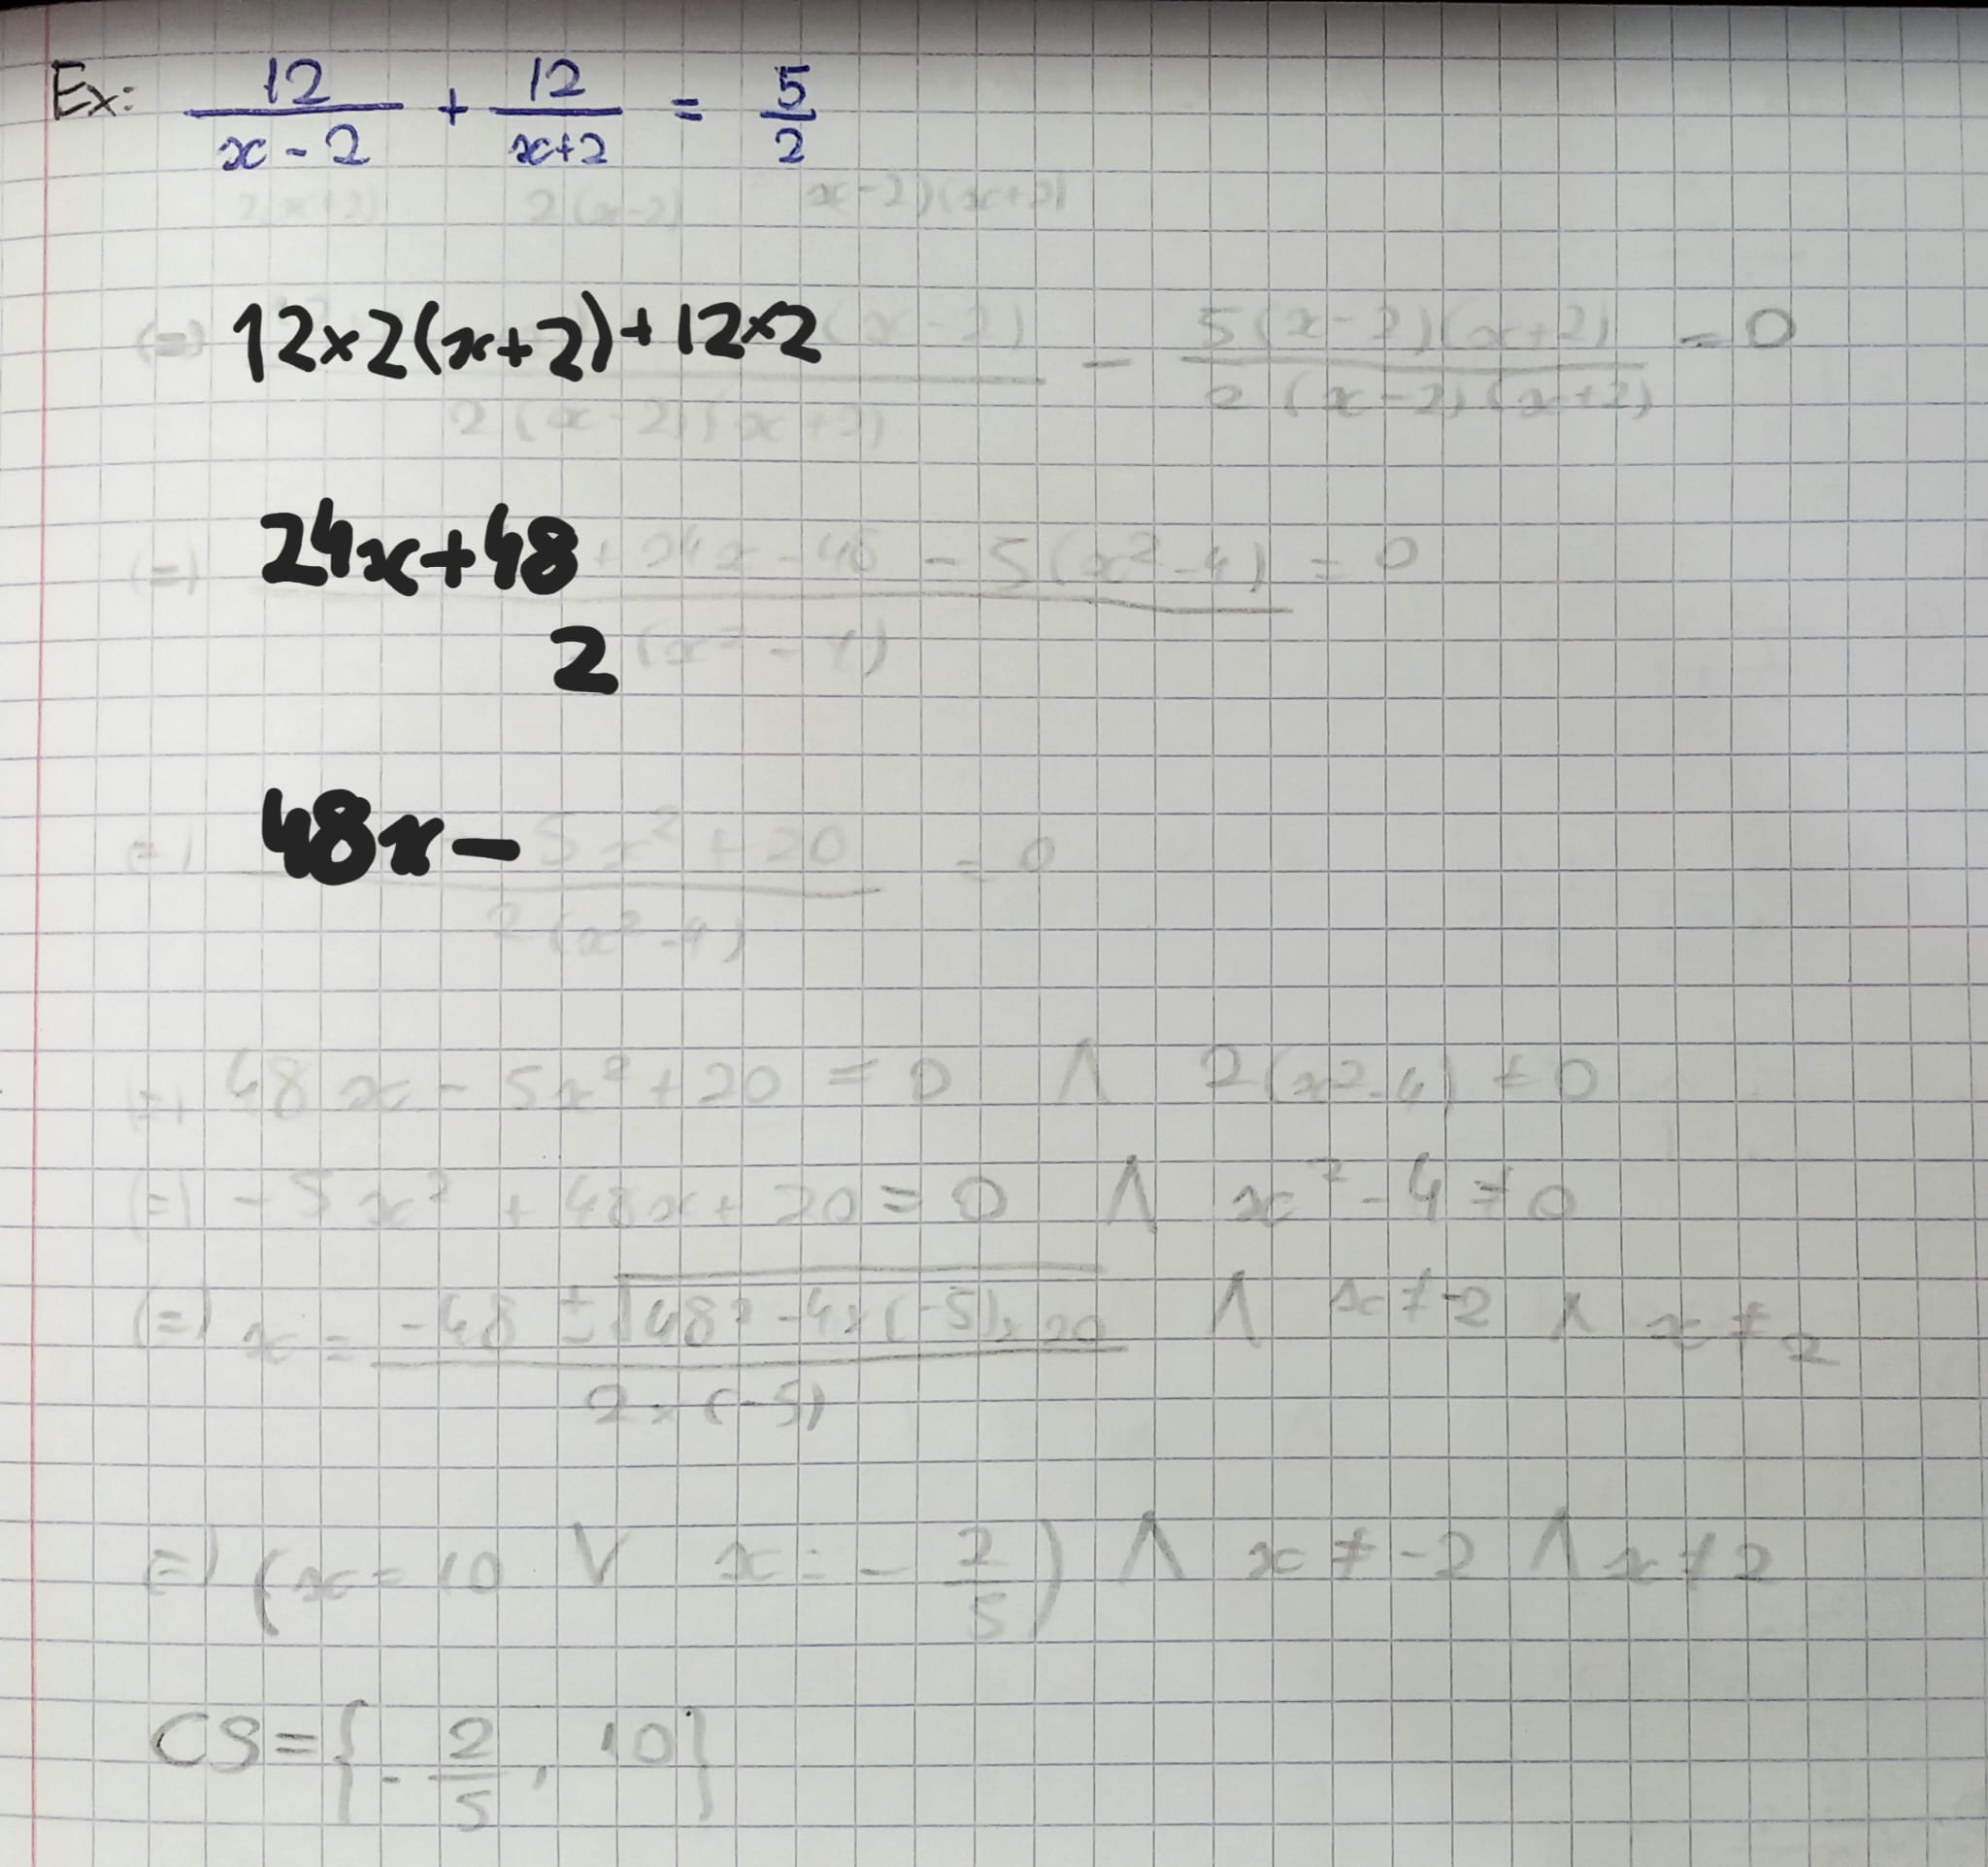 Ex: 12/(x-2) + 12/(x+2) = 5/2
2(x+2) 2(x-2) x-2)(x+2)
(=) 12×2(x+2)+12×2(x-2)/2(x-2)(x+2) - 5(x-2)(x+2)/2(x-2)(x+2) = 0
(=) 24x+48+24x-48-5(x²-4)/2(x²-4) = 0
(=) 48x-5x²+20/2(x²-4) = 0
(=) 48x-5x²+20=0 ∧ 2(x²-4)≠0
(=) -5x²+48x+20=0 ∧ x²-4≠0
(=) x = -48±√48²-4×(-5)×20/2×(-5) ∧ x≠-2 ∧ x≠2
(=) (x=10 ∨ x=-2/5) ∧ x≠-2 ∧ x≠2
CS={-2/5, 10}